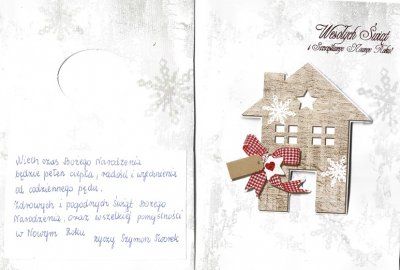 Wesołych Świąt
i Szczęśliwego Nowego Roku!
Niech czas Bożego Narodzenia
będzie pełen ciepła, radości i wytchnienia
od codziennego pędu.
Zdrowych i pogodnych Świąt Bożego
Narodzenia, oraz wszelkiej pomyślności
w Nowym Roku
życzy Szymon